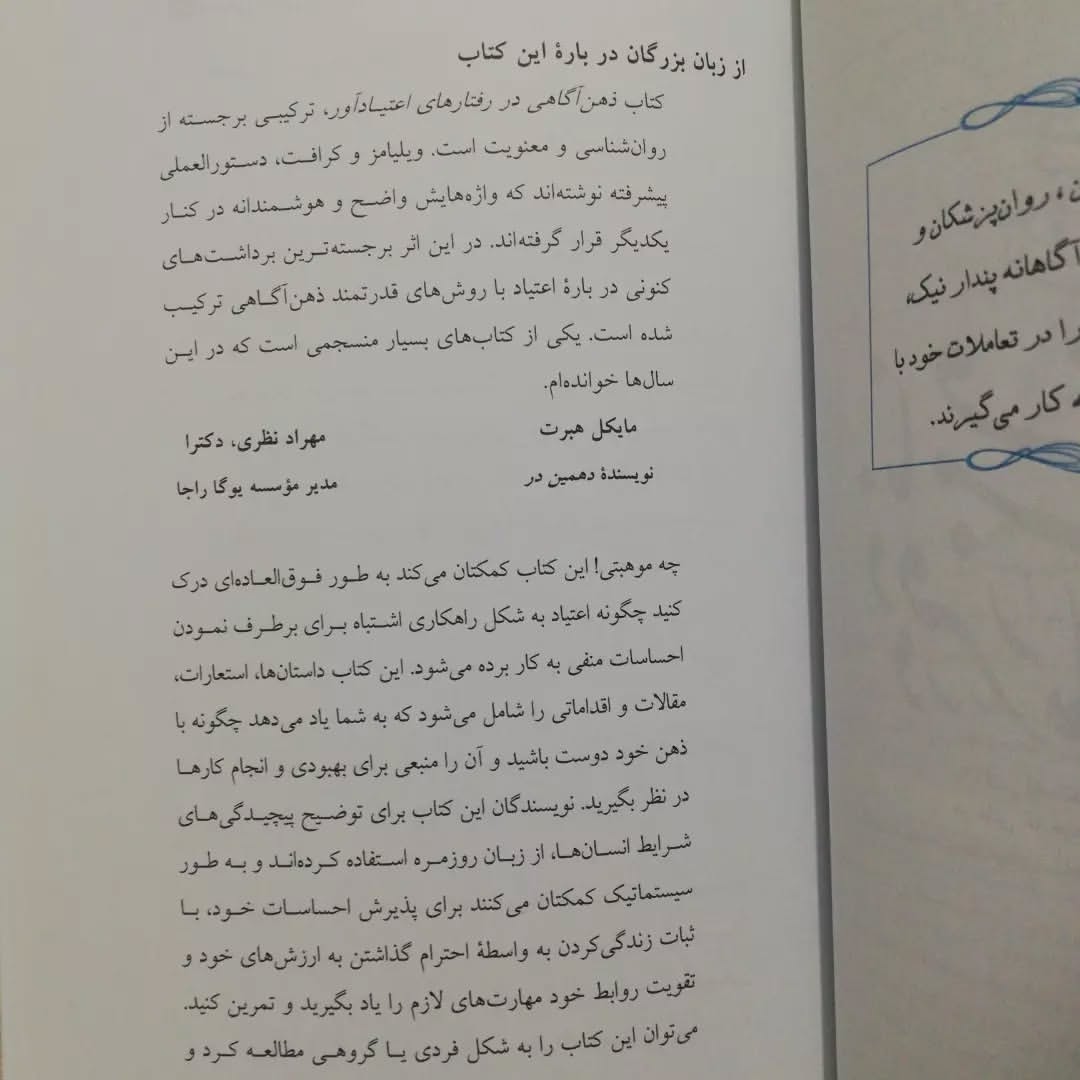 از زبان بزرگان در بارهٔ این کتاب
کتاب ذهن‌آگاهی در رفتارهای اعتیادآور، ترکیبی برجسته از
روان‌شناسی و معنویت است. ویلیامز و کرافت، دستورالعملی
پیشرفته نوشته‌اند که واژه‌هایش واضح و هوشمندانه در کنار
یکدیگر قرار گرفته‌اند. در این اثر برجسته‌ترین برداشت‌های
کنونی در بارهٔ اعتیاد با روش‌های قدرتمند ذهن‌آگاهی ترکیب
شده است. یکی از کتاب‌های بسیار منسجمی است که در این
سال‌ها خوانده‌ام.
مایکل هبرت مهراد نظری، دکترا
نویسندهٔ دهمین در مدیر مؤسسه یوگا راجا
چه موهبتی! این کتاب کمکتان می‌کند به طور فوق‌العاده‌ای درک
کنید چگونه اعتیاد به شکل راهکاری اشتباه برای برطرف نمودن
احساسات منفی به کار برده می‌شود. این کتاب داستان‌ها، استعارات،
مقالات و اقداماتی را شامل می‌شود که به شما یاد می‌دهد چگونه با
ذهن خود دوست باشید و آن را منبعی برای بهبودی و انجام کارها
در نظر بگیرید. نویسندگان این کتاب برای توضیح پیچیدگی‌های
شرایط انسان‌ها، از زبان روزمره استفاده کرده‌اند و به طور
سیستماتیک کمکتان می‌کنند برای پذیرش احساسات خود، با
ثبات زندگی‌کردن به واسطهٔ احترام گذاشتن به ارزش‌های خود و
تقویت روابط خود مهارت‌های لازم را یاد بگیرید و تمرین کنید.
می‌توان این کتاب را به شکل فردی یا گروهی مطالعه کرد و
، روان‌پزشکان و
آگاهانه پندار نیک،
را در تعاملات خود با
کار می‌گیرند.